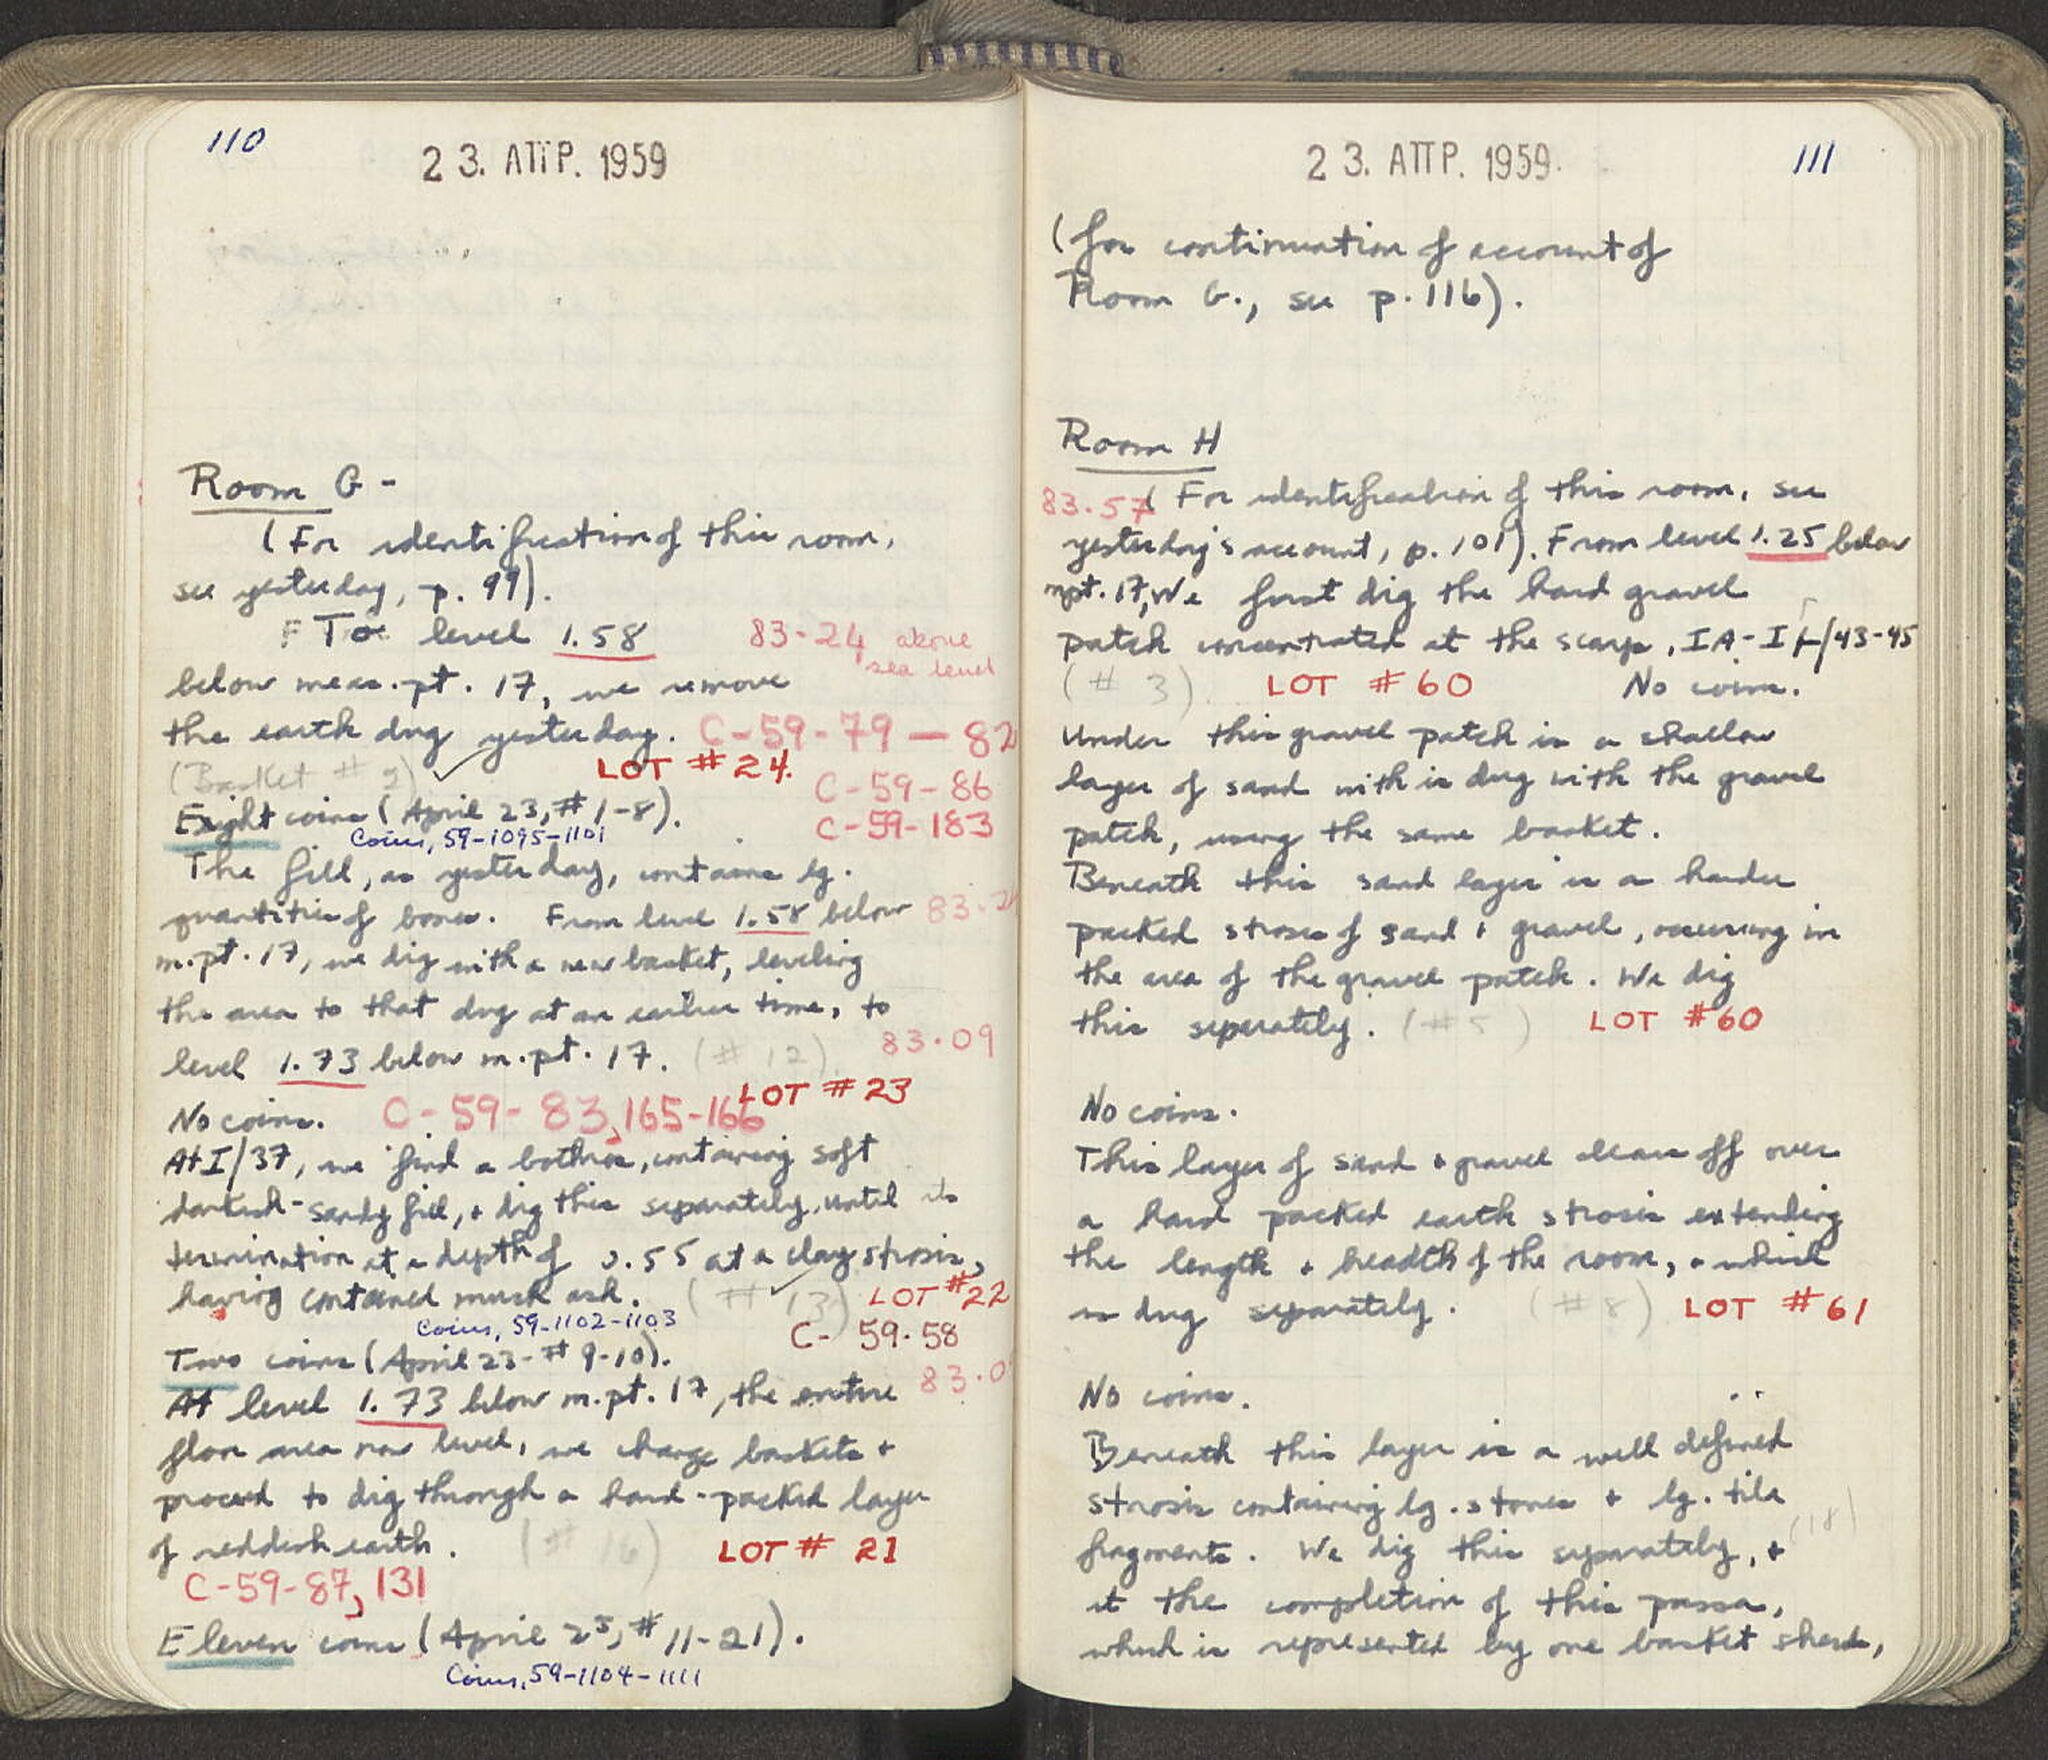 110
23. ΑΠΡ. 1959
Room G -
(For identification of this room,
see yesterday, p. 99).
To level 1.58 83.24 above
sea level
below meas. pt. 17, we remove
the earth dug yesterday. C-59-79-82
(Basket # 2) LOT #24.
C-59-86
Eight coins (April 23, # 1-8). C-59-183
Coins, 59-1095-1101
The fill, as yesterday, contains lg.
quantities of bones. From level 1.58 below 83.2
m.pt. 17, we dig with a new basket, leveling
the area to that dug at an earlier time, to
level 1.73 below m.pt. 17. (# 12). 83.09
LOT #23
No coins. C-59-83, 165-166
At I/37, we find a bothros, containing soft
darkish-sandy fill, + dig this separately, until its
termination at a depth of 0.55 at a clay strosis,
having contained much ash. (# 13) LOT #22
Coins, 59-1102-1103 C-59.58
Two coins (April 23-# 9-10).
At level 1.73 below m.pt. 17, the entire 83.0
floor area now level, we change baskets +
proceed to dig through a hard-packed layer
of reddish earth. (# 16) LOT # 21
C-59-87, 131
Eleven coins (April 23, # 11-21).
Coins, 59-1104-1111
23. ΑΠΡ. 1959. 111
(for continuation of account of
Room G., see p. 116).
Room H
83.57 (For identification of this room, see
yesterday's account, p. 101). From level 1.25 below
mpt. 17, We first dig the hard gravel
patch concentrated at the scarp, IA-I /43-45
(# 3). LOT #60 No coins.
Under this gravel patch is a shallow
layer of sand with is dug with the gravel
patch, using the same basket.
Beneath this sand layer is a harder
packed strosis of sand + gravel, occurring in
the area of the gravel patch. We dig
this seperately. (#5) LOT #60
No coins.
This layer of sand + gravel cleans off over
a hard packed earth strosis extending
the length + breadth of the room, + which
is dug separately. (#8) LOT #61
No coins.
Beneath this layer is a well defined
strosis containing lg. stones + lg. tile
fragments. We dig this separately, + (18)
at the completion of this passa,
which is represented by one basket sherds,